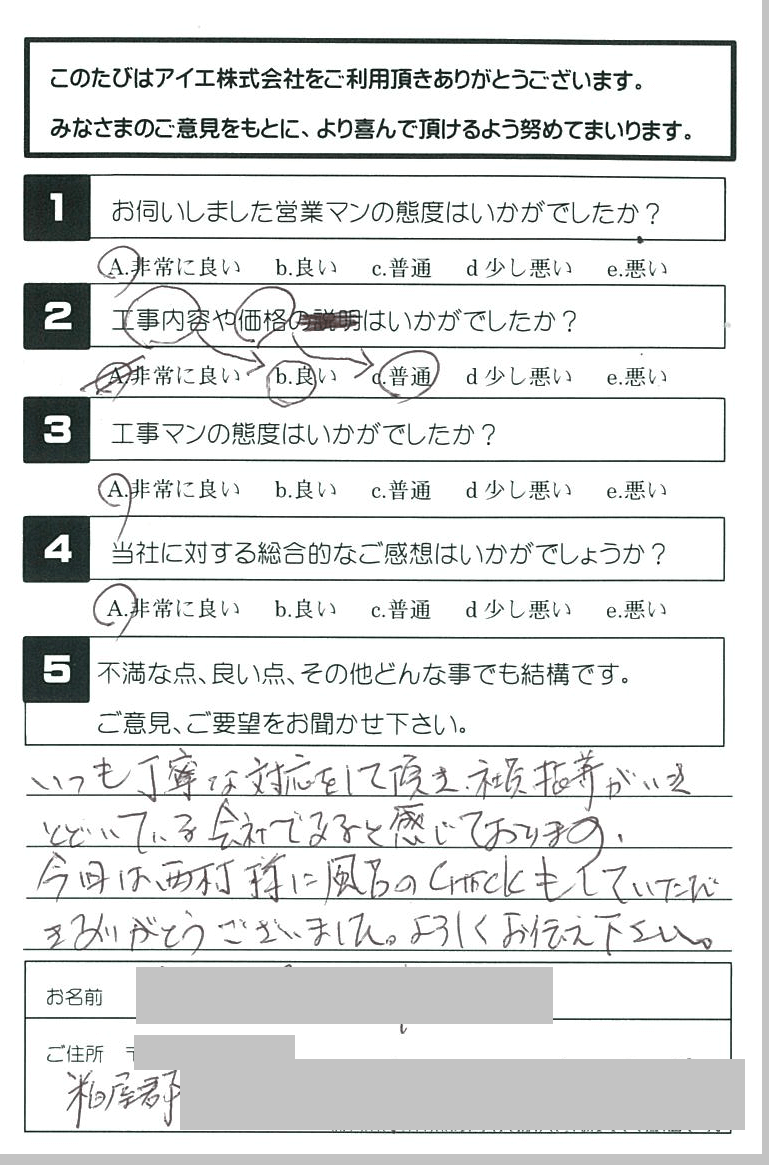 このたびはアイエ株式会社をご利用頂きありがとうございます。
みなさまのご意見をもとに、より喜んで頂けるよう努めてまいります。
1 お伺いしました営業マンの態度はいかがでしたか？
A.非常に良い b.良い c.普通 d 少し悪い e.悪い
2 工事内容や価格の説明はいかがでしたか？
A.非常に良い b.良い c.普通 d 少し悪い e.悪い
3 工事マンの態度はいかがでしたか？
A.非常に良い b.良い c.普通 d 少し悪い e.悪い
4 当社に対する総合的なご感想はいかがでしょうか？
A.非常に良い b.良い c.普通 d 少し悪い e.悪い
5 不満な点、良い点、その他どんな事でも結構です。
ご意見、ご要望をお聞かせ下さい。
いつも丁寧な対応をして頂き、社員指導がいき
とどいている会社であると感じております。
今回は、西村様に風呂のCHECKもしていただ
きありがとうございました。よろしくお伝え下さい。
お名前
ご住所 〒
粕屋郡